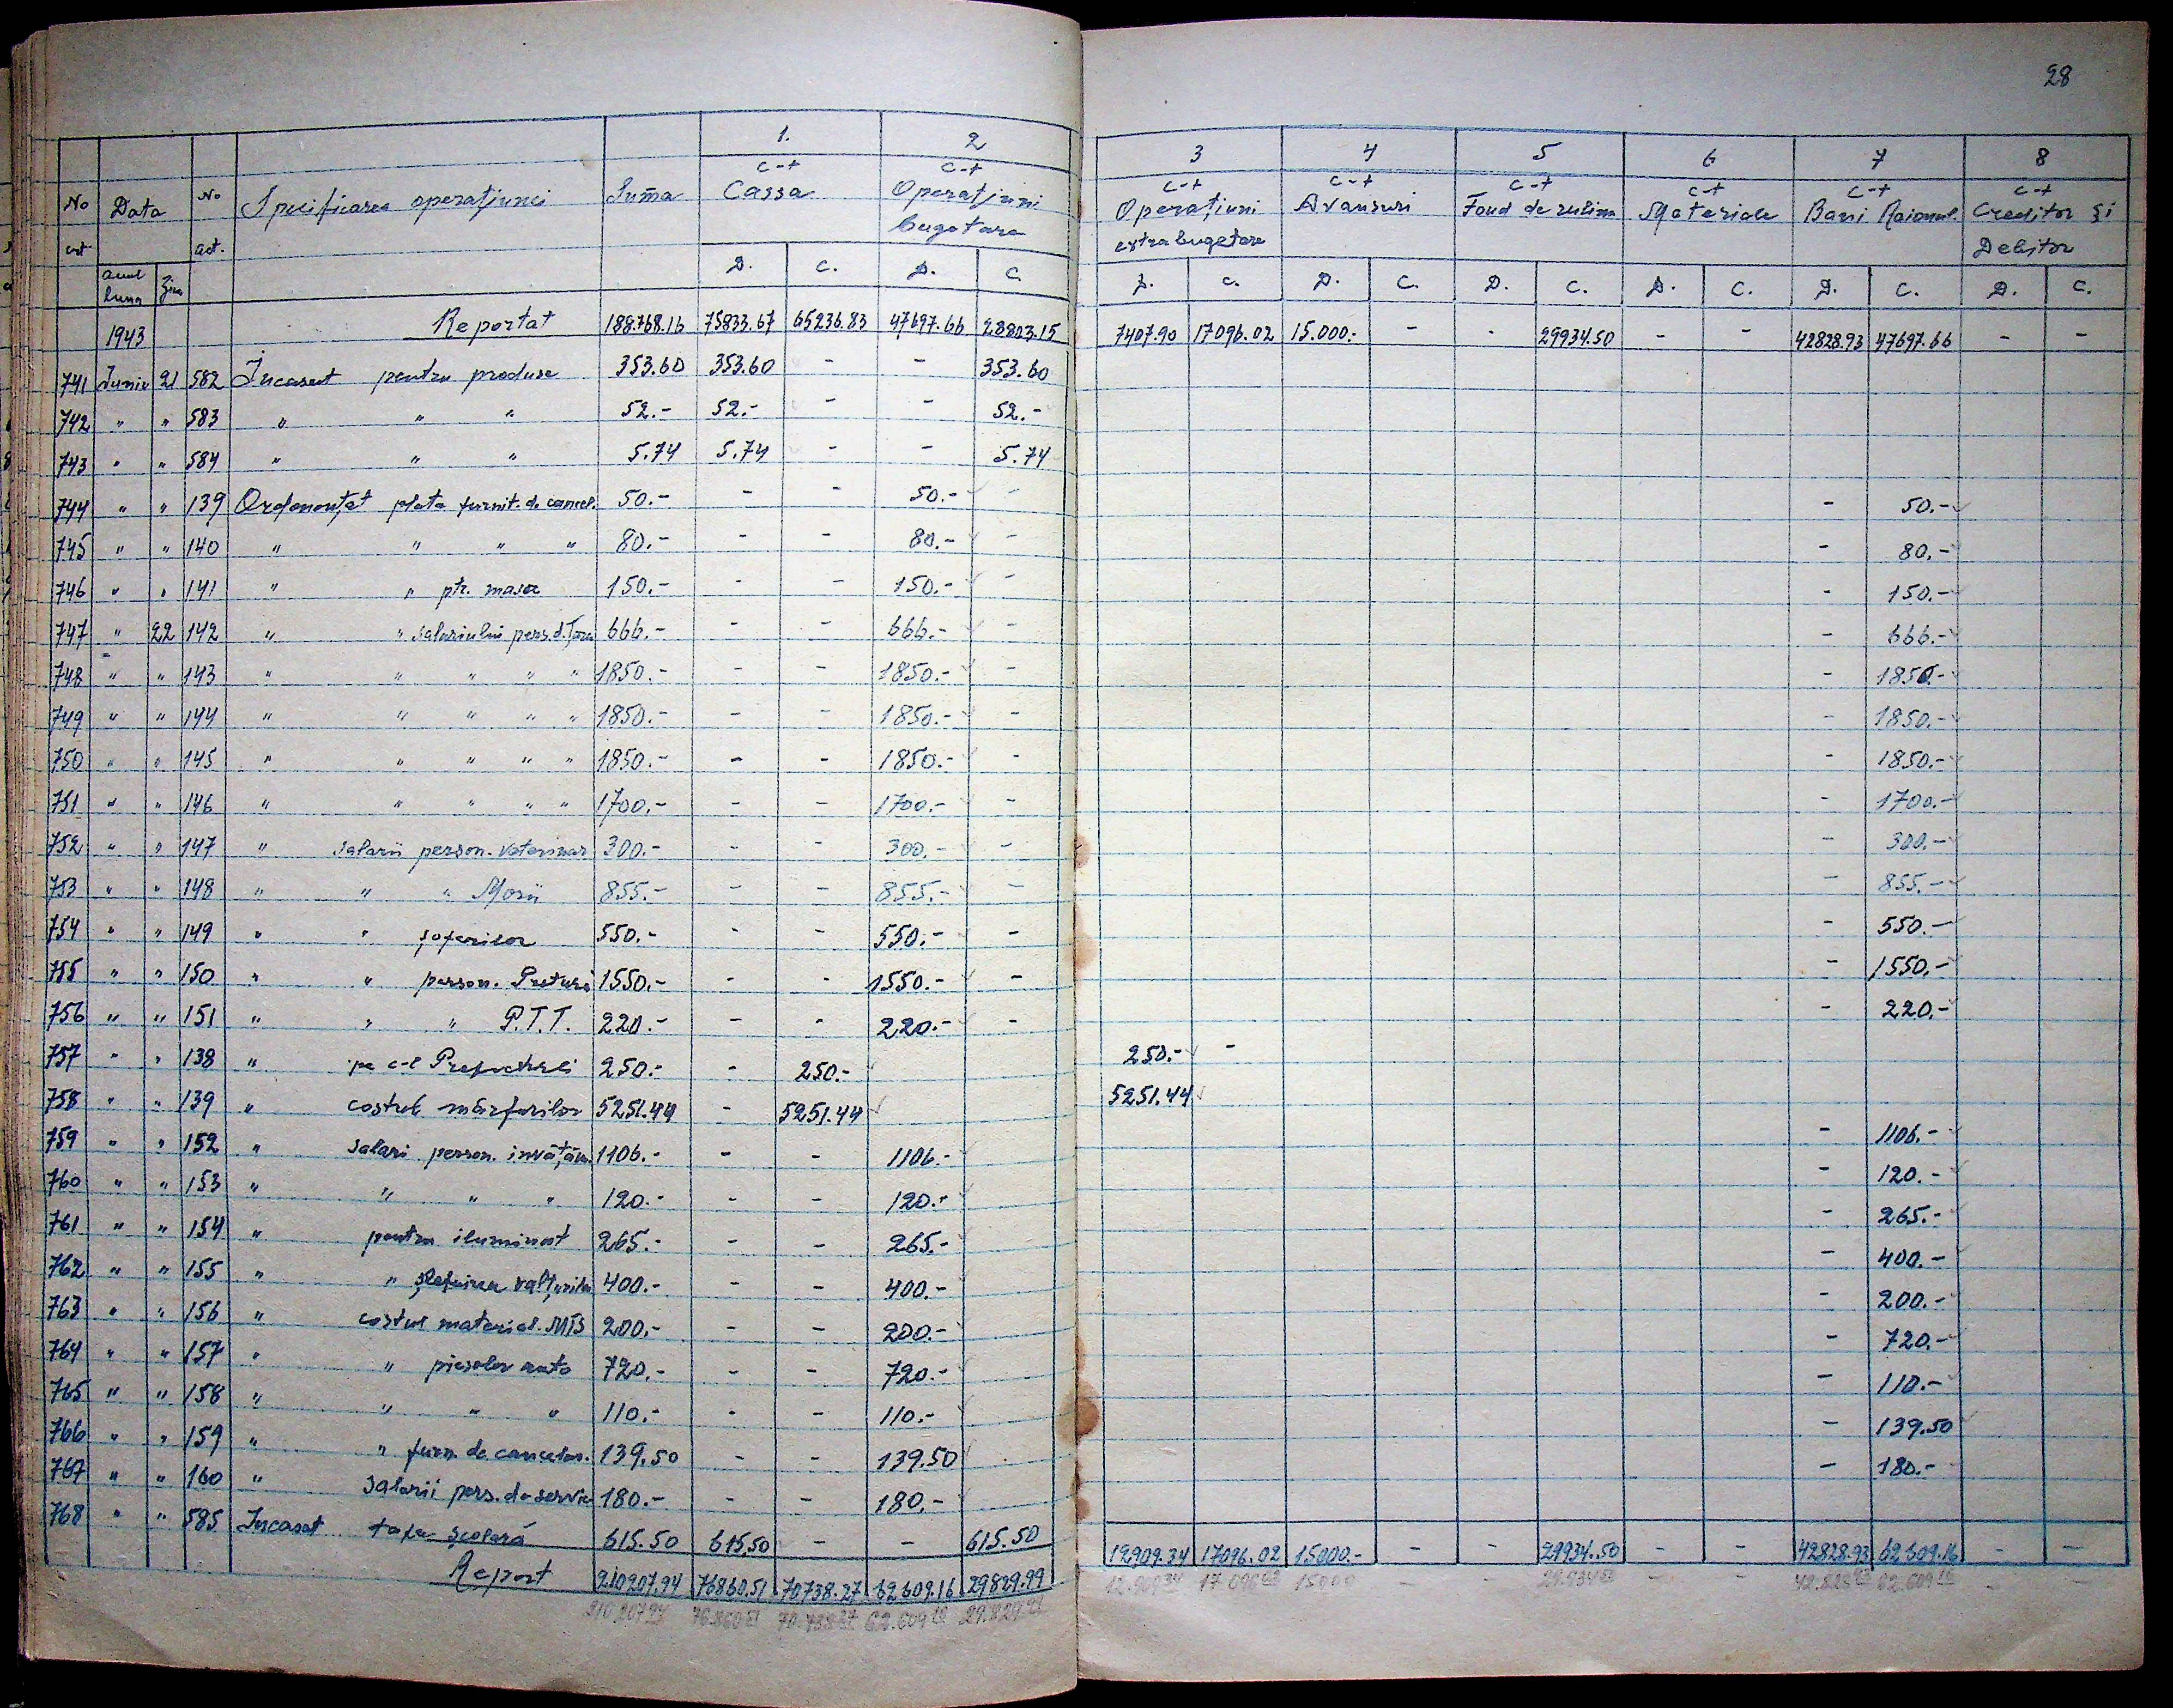 28
1. 2 3 4 5 6 7 8
No crt. Data No act. Specificarea operațiunei Suma c-t Cassa c-t Operațiuni bugetare c-t Operațiuni extrabugetare c-t Avansuri c-t Fond de c-t Materiale c-t Bani Raionul. c-t Creditor și Debitor
Anul luna Ziua D. C. D. C. D. C. D. C. D. C. D. C. D. C. D. C.
1943 Reportat 188.768.16 75833.67 65236.83 47697.66 28803.15 7407.90 17096.02 15.000.- - - 29934.50 - - 42828.93 47697.66 - -
741 Junie 21 582 Încasat pentru produse 353.60 353.60 - - 353.60
742 " " 583 " " " 52.- 52.- - - 52.-
743 " " 584 " " " 5.74 5.74 - - 5.74
744 " " 139 Ordonanțat plata furnit. de cancel. 50.- - - 50.- - - 50.-
745 " " 140 " " " " 80.- - - 80.- - - 80.-
746 " " 141 " " ptr. masa 150.- - - 150.- - - 150.-
747 " 22 142 " " salariului pers. d. 666.- - - 666.- - - 666.-
748 " " 143 " " " " " 1850.- - - 1850.- - - 1850.-
749 " " 144 " " " " " 1850.- - - 1850.- - - 1850.-
750 " " 145 " " " " " 1850.- - - 1850.- - - 1850.-
751 " " 146 " " " " " 1700.- - - 1700.- - - 1700.-
752 " " 147 " salarii person. veterinar 300.- - - 300.- - - 300.-
753 " " 148 " " " Morii 855.- - - 855.- - - 855.-
754 " " 149 " " șoferilor 550.- - - 550.- - - 550.-
755 " " 150 " " person. Preturii 1550.- - - 1550.- - - 1550.-
756 " " 151 " " " P.T.T. 220.- - - 220.- - - 220.-
757 " " 138 " pe c-l Prefecturei 250.- - 250.- 250.- -
758 " " 139 " costul mărfurilor 5251.44 - 5251.44 5251.44
759 " " 152 " salari person. învățăm. 1106.- - - 1106.- - 1106.-
760 " " 153 " " " " 120.- - - 120.- - 120.-
761 " " 154 " pentru iluminat 265.- - - 265.- - 265.-
762 " " 155 " " șlefuirea valțurilor 400.- - - 400.- - 400.-
763 " " 156 " costul material. MTS 200.- - - 200.- - 200.-
764 " " 157 " " pieselor auto 720.- - - 720.- - 720.-
765 " " 158 " " " " 110.- - - 110.- - 110.-
766 " " 159 " " furn. de cancelar. 139.50 - - 139.50 - 139.50
767 " " 160 " salarii pers. de servic 180.- - - 180.- - 180.-
768 " " 585 Incasat taxe școlară 615.50 615.50 - - 615.50
Report 210207.94 76860.51 70738.27 62609.16 29829.99 12909.34 17096.02 15000.- - - 29934.50 - - 42828.93 62609.16 - -
210.207 94 76.860 51 70.738 27 62.609 16 29.829 99 12.909 34 17 096 02 15000 - - 29.934 50 - - 42.828 93 62.609 16 - -